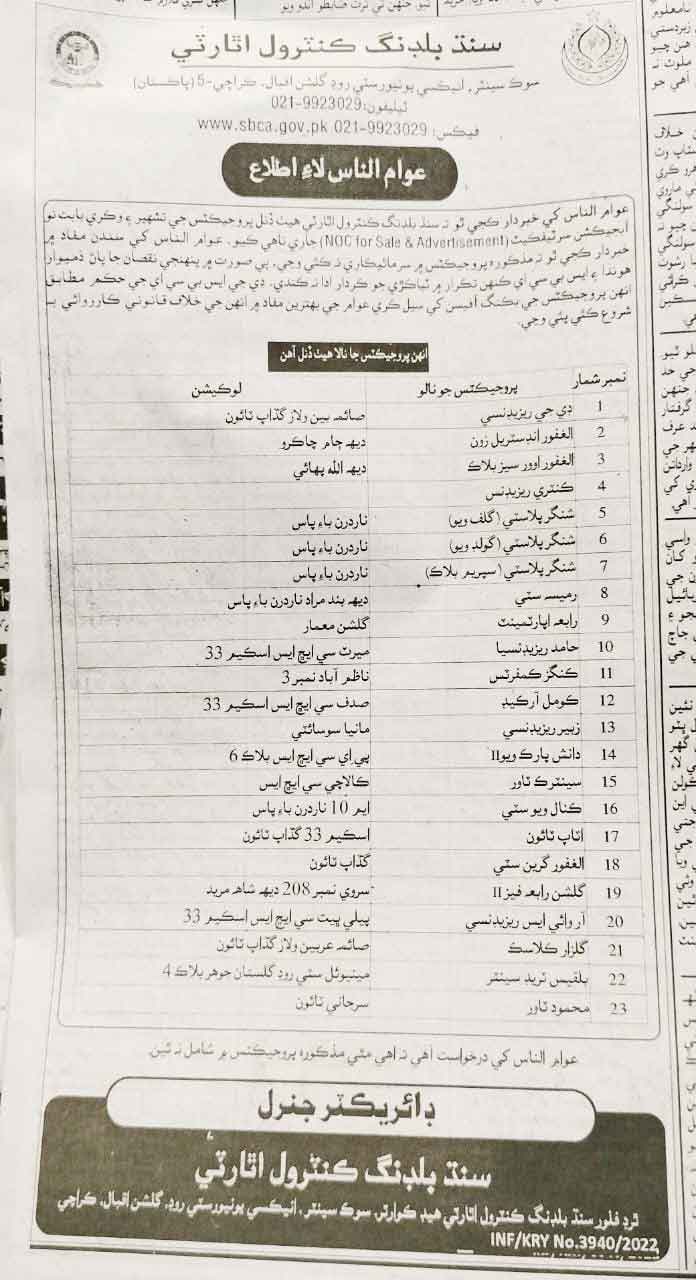 سنڌ بلڊنگ ڪنٽرول اٿارٽي
سوڪ سينٽر، انيڪسي يونيورسٽي روڊ گلشن اقبال، ڪراچي-5 (پاڪستان)
ٽيليفون: 9923029-021
فيڪس: 9923029-021 www.sbca.gov.pk
عوام الناس لاءِ اطلاع
عوام الناس کي خبردار ڪجي ٿو ته سنڌ بلڊنگ ڪنٽرول اٿارٽي هيٺ ڏنل پروجيڪٽس جي تشهير ۽ وڪري بابت نو
آبجيڪشن سرٽيفڪيٽ (NOC for Sale & Advertisement) جاري ناهي ڪيو. عوام الناس کي سندن مفاد ۾
خبردار ڪجي ٿو ته مذڪوره پروجيڪٽس ۾ سرمائيڪاري نه ڪئي وڃي، ٻي صورت ۾ پنهنجي نقصان جا پاڻ ذميوار
هوندا ۽ ايس بي سي اي ڪنهن تڪرار ۾ ٽياڪڙي جو ڪردار ادا نه ڪندي. ڊي جي ايس بي سي اي جي حڪم مطابق
انهن پروجيڪٽس جي بڪنگ آفيس کي سيل ڪري عوام جي بهترين مفاد ۾ انهن جي خلاف قانوني ڪارروائي به
شروع ڪئي پئي وڃي.
انهن پروجيڪٽس جا نالا هيٺ ڏنل آهن
نمبر شمار پروجيڪٽس جو نالو لوڪيشن
1 ڊي جي ريزيڊنسي صائمہ بين ولاز گڏاپ ٽائون
2 الغفور انڊسٽريل زون ديهه ڄام چاڪرو
3 الغفور اوور سيز بلاڪ ديهه الله پهائي
4 ڪنٽري ريزيڊنس
5 شنگرپلاسٽي (گلف ويو) ناردرن باءِ پاس
6 شنگرپلاسٽي (گولڊ ويو) ناردرن باءِ پاس
7 شنگرپلاسٽي (سپريم بلاڪ) ناردرن باءِ پاس
8 رميسه سٽي ديهه بند مراد ناردرن باءِ پاس
9 رابعه اپارٽمينٽ گلشن معمار
10 حامد ريزيڊنسيا ميرٽ سي ايڇ ايس اسڪيم 33
11 ڪنگز ڪمفرٽس ناظم آباد نمبر 3
12 ڪومل آرڪيڊ صدف سي ايڇ ايس اسڪيم 33
13 زبير ريزيڊنسي مانيا سوسائٽي
14 دانش پارڪ ويو II پي اي سي ايڇ ايس بلاڪ 6
15 سينٽرڪ ٽاور ڪالاچي سي ايڇ ايس
16 ڪنال ويو سٽي ايم 10 ناردرن باءِ پاس
17 اتاپ ٽائون اسڪيم 33 گڏاپ ٽائون
18 الغفور گرين سٽي گڏاپ ٽائون
19 گلشن رابعه فيز II سروي نمبر 208 ديهه شاهه مريد
20 آر وائي ايس ريزيڊنسي پيلي ڀيت سي ايڇ ايس اسڪيم 33
21 گلزار ڪلاسڪ صائمه عربين ولاز گڏاپ ٽائون
22 بلقيس ٽريڊ سينٽر مينيوئل سٽي روڊ گلستان جوهر بلاڪ 4
23 محمود ٽاور سرجاني ٽائون
عوام الناس کي درخواست آهي ته اهي مٿي مذڪوره پروجيڪٽس ۾ شامل نه ٿين.
ڊائريڪٽر جنرل
سنڌ بلڊنگ ڪنٽرول اٿارٽي
ٿرڊ فلور سنڌ بلڊنگ ڪنٽرول اٿارٽي هيڊ ڪوارٽر، سوڪ سينٽر، انيڪسي يونيورسٽي روڊ، گلشن اقبال، ڪراچي
INF/KRY No.3940/2022